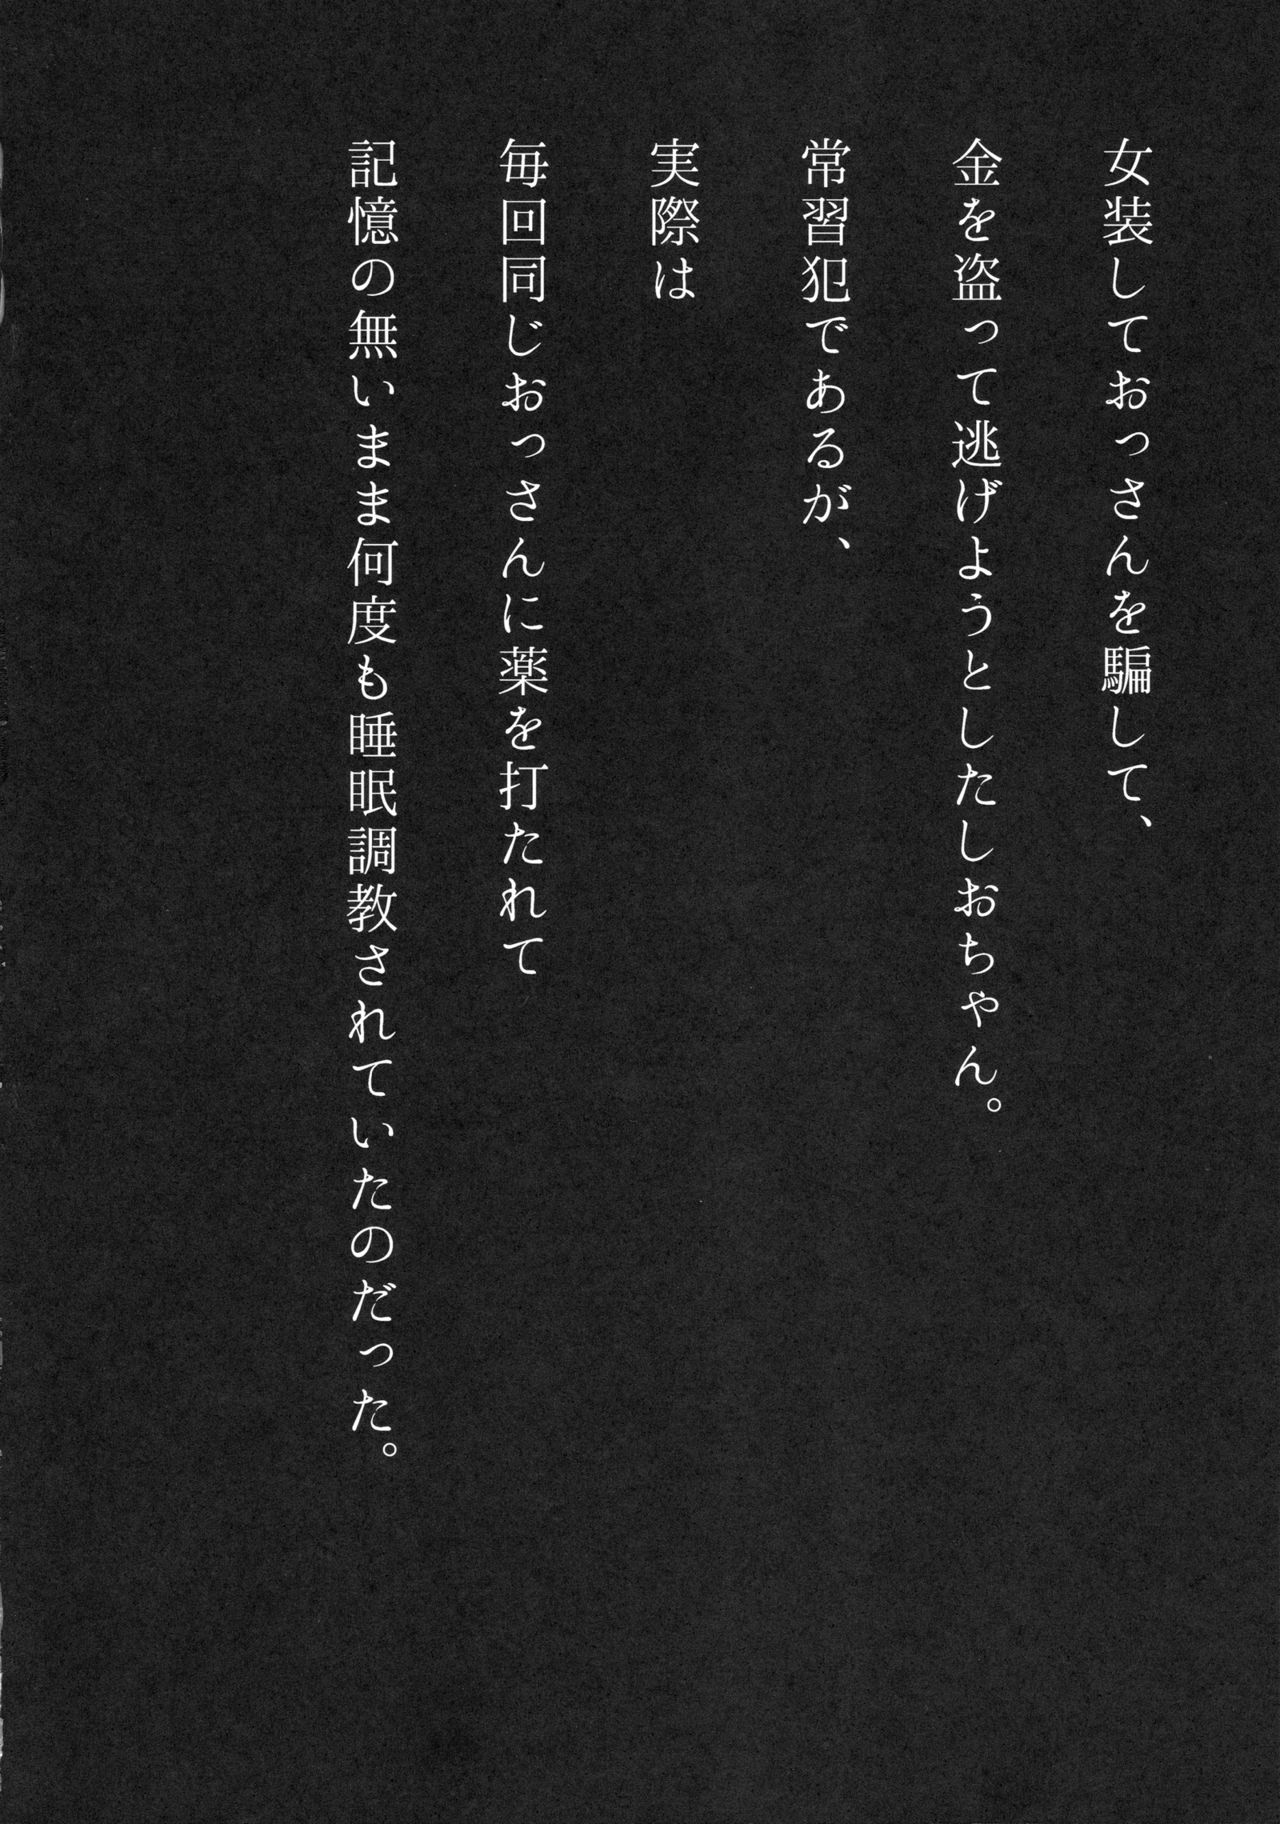 女装しておっさんを騙して、
金を盗って逃げようとしたしおちゃん。
常習犯であるが、
実際は
毎回同じおっさんに薬を打たれて
記憶の無いまま何度も睡眠調教されていたのだった。